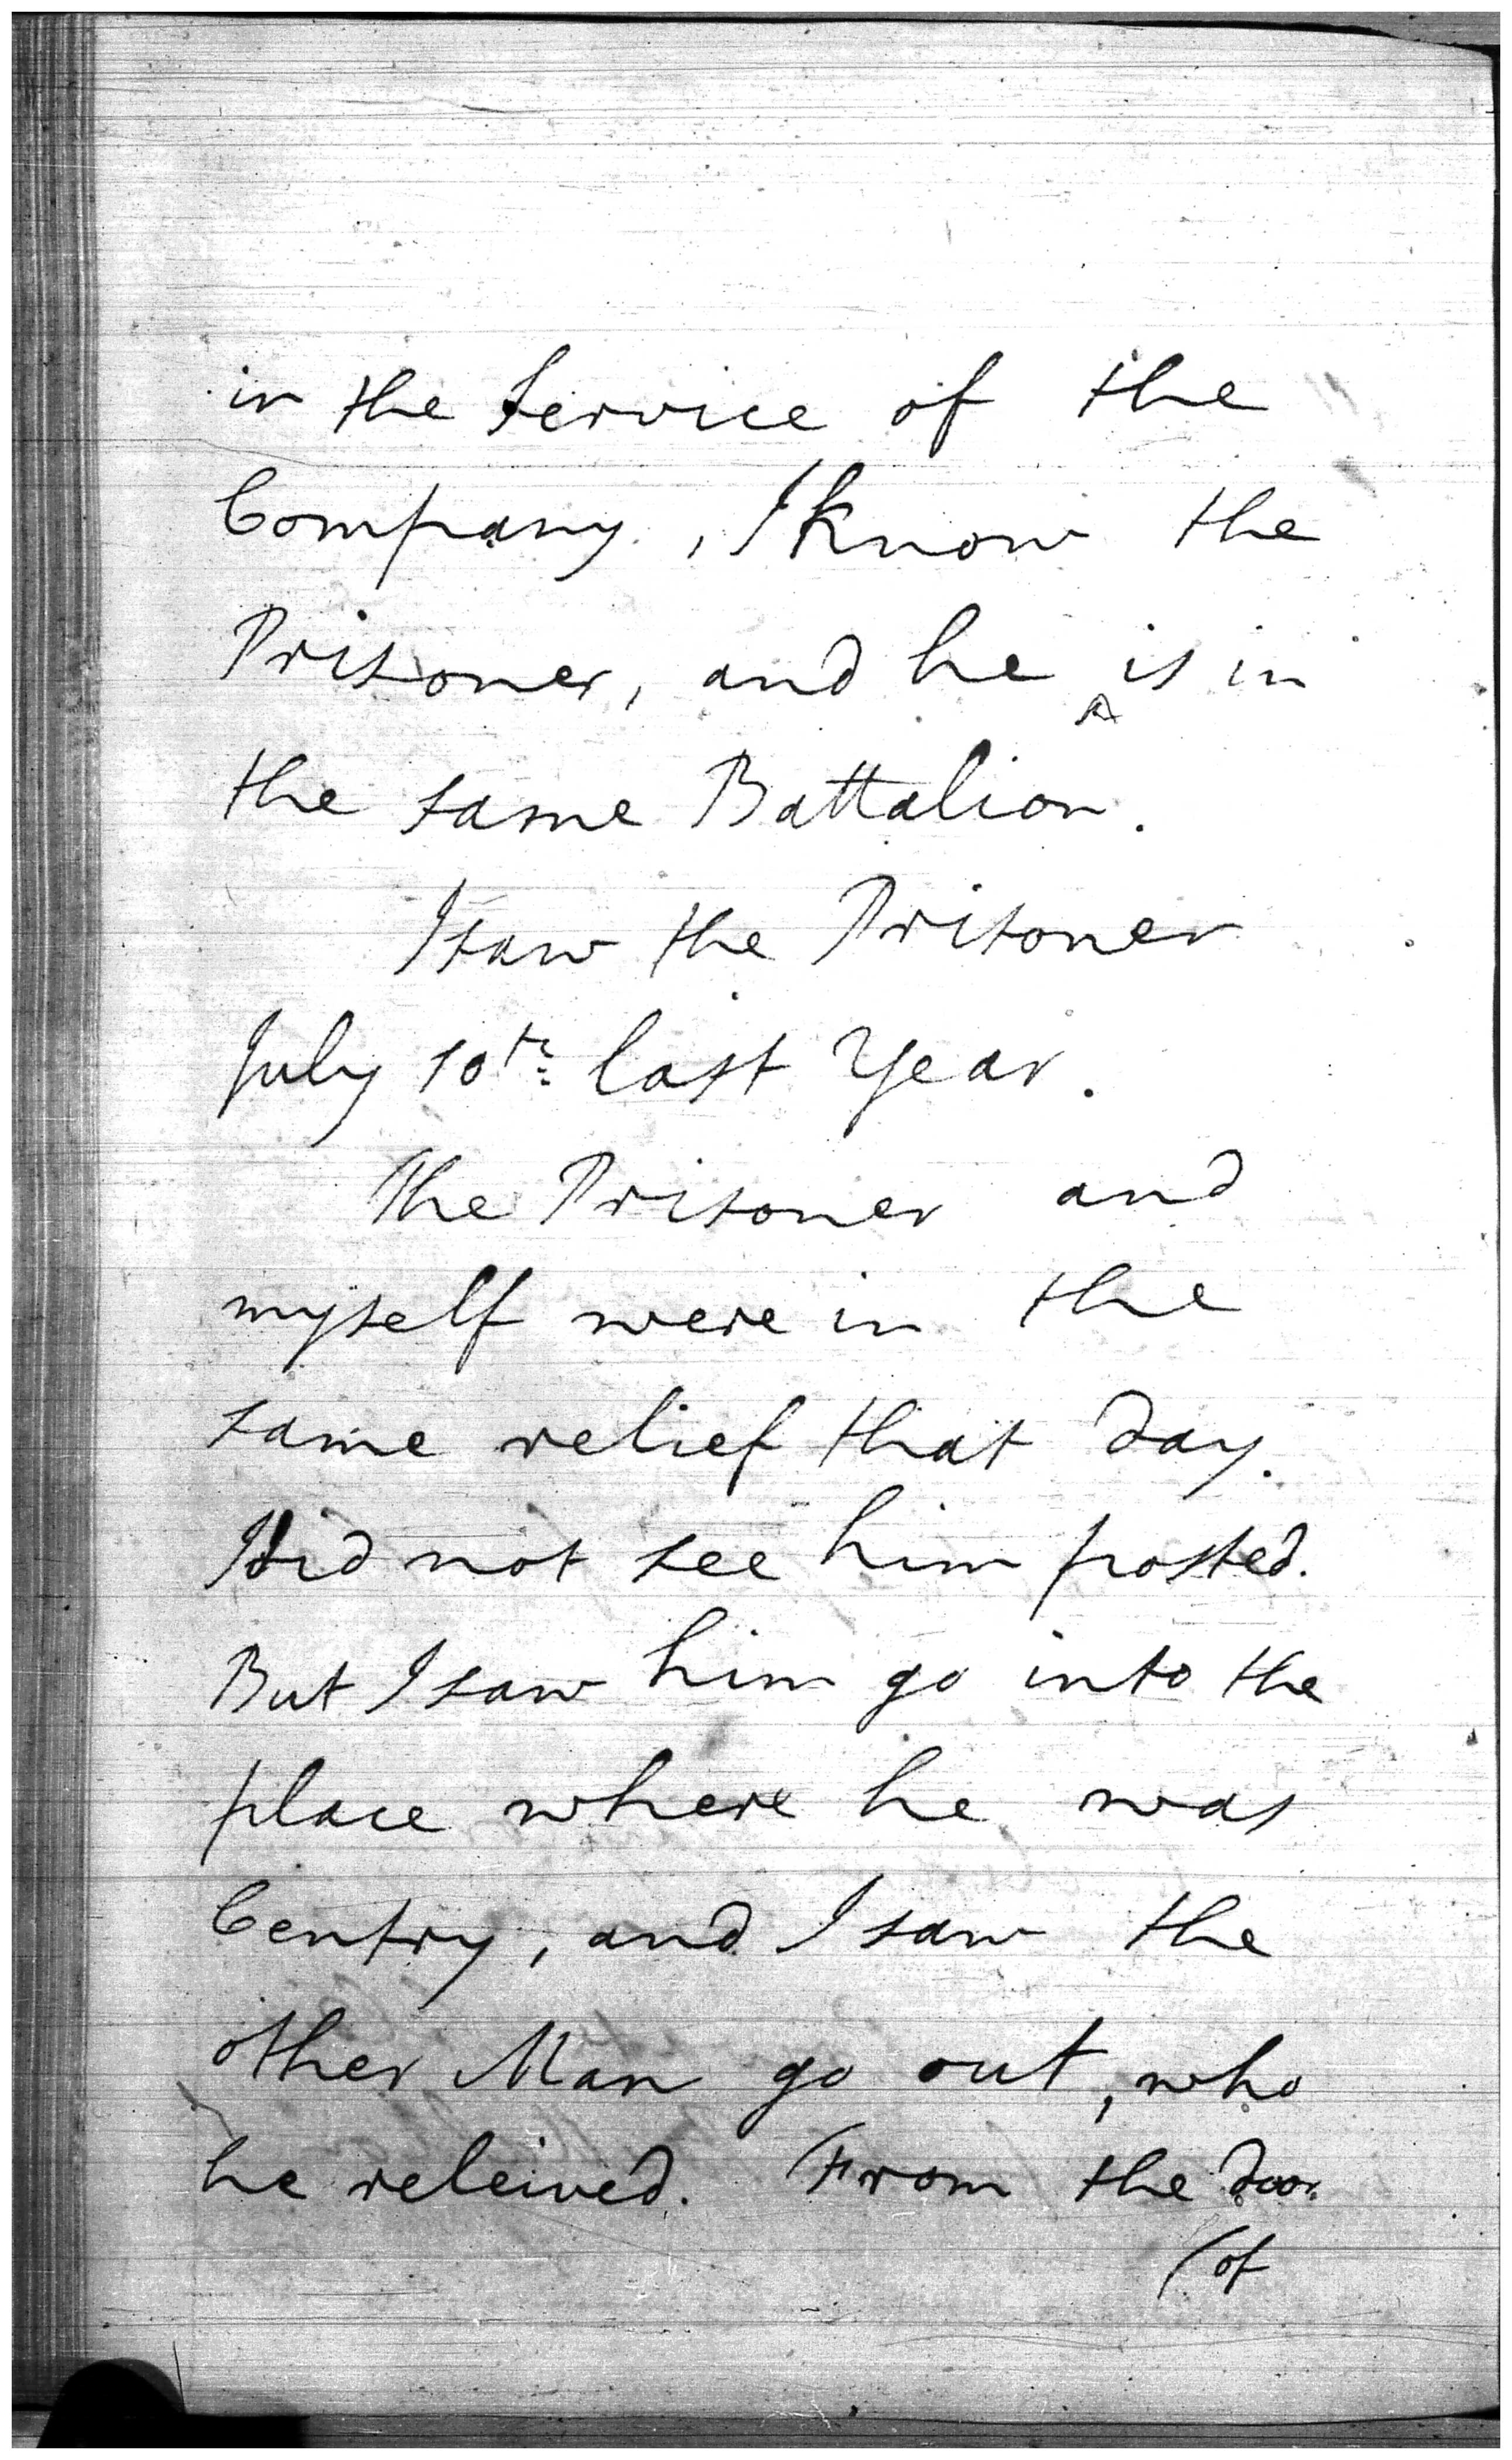 in the Service of the
Company, I know the
Prisoner, and he is in
the same Battalion.
I saw the Prisoner
July 10th last Year.
The Prisoner and
myself were in the
same relief that day.
I did not see him posted.
But I saw him go into the
place where he was
Centry, and I saw the
other Man go out, who
he releived. From the door
(of